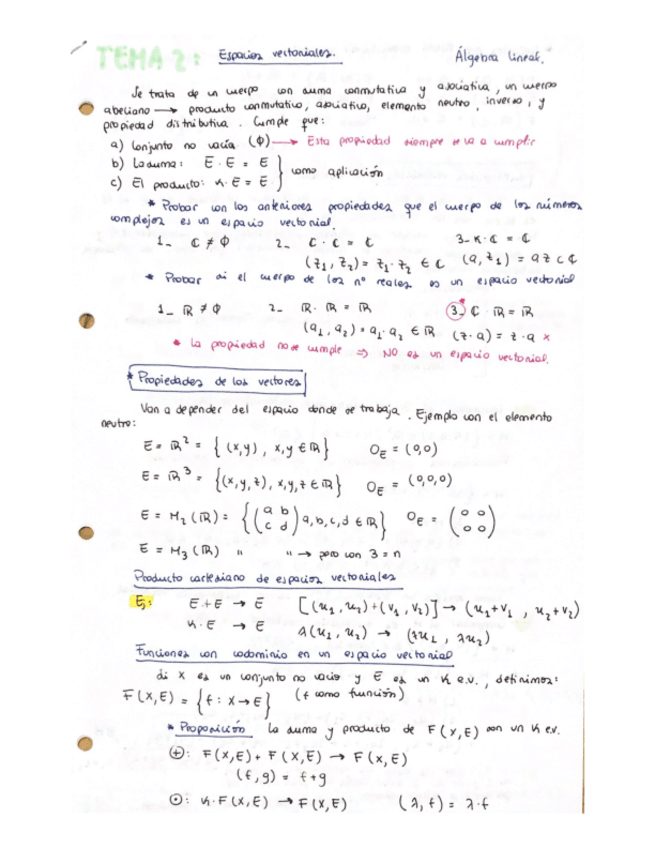 TEMA 2: Espacios vectoriales. Álgebra lineal.
Se trata de un cuerpo con suma conmutativa y asociativa, un cuerpo
abeliano → producto conmutativo, asociativo, elemento neutro, inverso, y
propiedad distributiva. Cumple que:
a) Conjunto no vacío (ϕ) → Esta propiedad siempre se va a cumplir
b) La suma: E · E = E } como aplicación
c) El producto: K · E = E
* Probar con los anteriores propiedades que el cuerpo de los números
complejos es un espacio vectorial.
1_ ℂ ≠ ϕ 2_ ℂ · ℂ = ℂ 3_ K · ℂ = ℂ
(z₁, z₂) = z₁ · z₂ ∈ ℂ (a, z₁) = a z c ℂ
* Probar si el cuerpo de los nº reales es un espacio vectorial
1_ ℝ ≠ ϕ 2_ ℝ · ℝ = ℝ 3_ ℂ · ℝ = ℝ
(a₁, a₂) = a₁ · a₂ ∈ ℝ (z · a) = z · a ×
* La propiedad no se cumple ⇒ NO es un espacio vectorial.
* Propiedades de los vectores
Van a depender del espacio donde se trabaja. Ejemplo con el elemento
neutro:
E = ℝ² = { (x,y), x,y ∈ ℝ } O_E = (0,0)
E = ℝ³ = { (x,y,z), x,y,z ∈ ℝ } O_E = (0,0,0)
E = M₂(ℝ) = { (a b c d) a,b,c,d ∈ ℝ } O_E = (0 0 0 0)
E = M₃(ℝ) " " → pero con 3 = n
Producto cartesiano de espacios vectoriales
Ej: E + E → E [(u₁, u₂) + (v₁, v₂)] → (u₁+v₁, u₂+v₂)
K · E → E λ(u₁, u₂) → (λu₁, λu₂)
Funciones con codominio en un espacio vectorial
Si X es un conjunto no vacio y E es un K e.v., definimos:
F(X,E) = { f: X → E } (f como función)
* Proposición La suma y producto de F(X,E) son un K e.v.
⊕: F(X,E) + F(X,E) → F(X,E)
(f,g) = f+g
⊙: K · F(X,E) → F(X,E) (λ, f) = λ · f